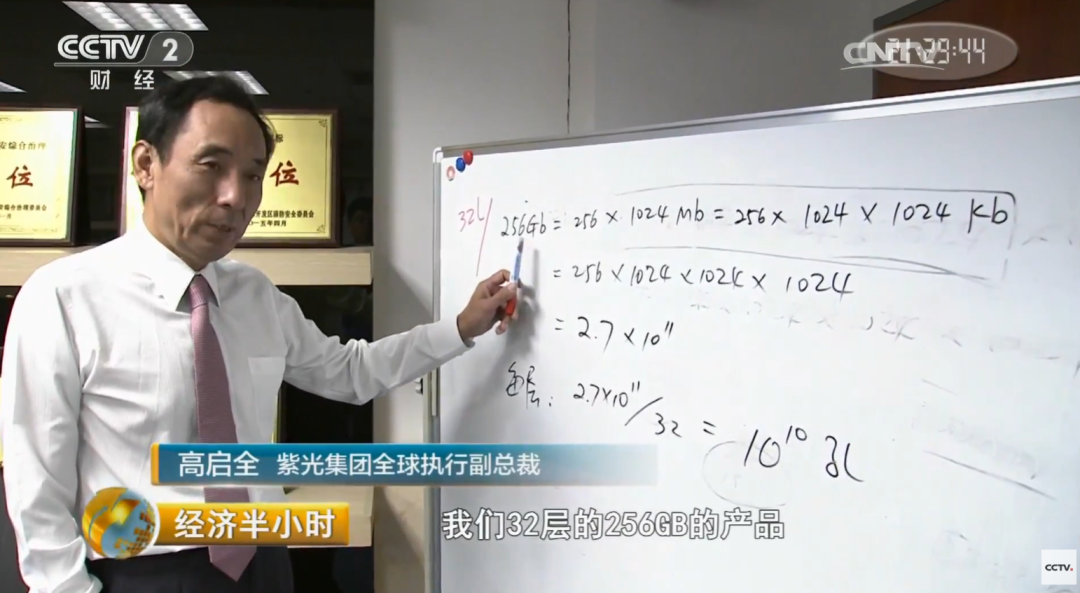 CCTV 2
财 经
CNTV
21:29:44
安综合治理
位
位
开发区消防安全委员会
一五年四月
32L/
256Gb = 256 × 1024 Mb = 256 × 1024 × 1024 Kb
= 256 × 1024 × 1024 × 1024
= 2.7 × 10¹¹
每层: 2.7×10¹¹/32 = 10¹⁰ 孔
高启全 紫光集团全球执行副总裁
经济半小时
我们32层的256GB的产品
CCTV.